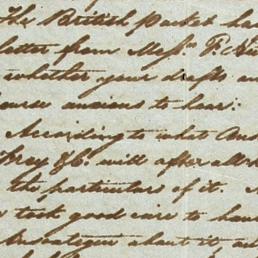 The British Packet ha
letter from Mess.rs F. &
whether your drafts a
course anxious to hear:
According to what Ans
Frey &C. will after all
the particulars of it.
took good care to han
Ansategui about it, a